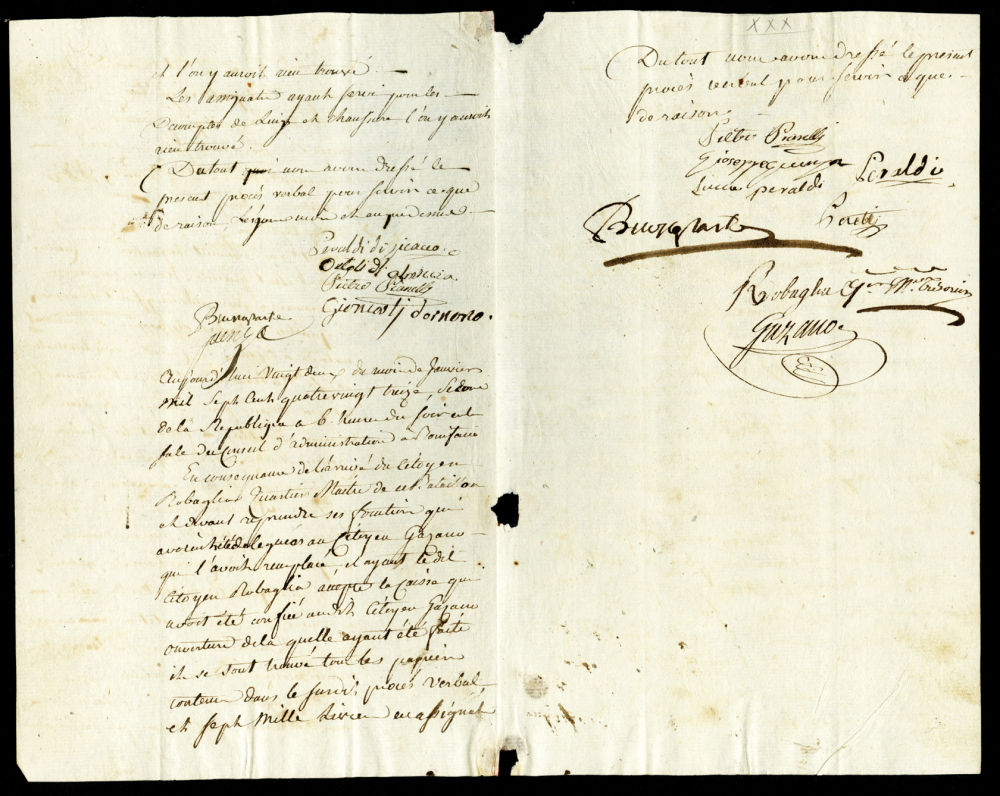 et l'on y auroit rien trouvé
Les assignats ayant servi pour les
Decomptes de Linge et chaussure l'on y auroit
rien trouvé.
Du tout nous avons dressé le
present procès verbal pour servir a que
de raison, et an que dessus
Peraldi di Zicavo.
Ortoli di
Pietro Pianelli
Buonaparte
Gioncastj d'ornano.
quenza
Aujourd'hui vingt deux du mois de Janvier
mil Sept Cent quatre vingt treize, Second
de la Republique a 6. heures du soir et
sale du Conseil d'administration a Bonifacio
En consequance de l'arrivé du Citoyen
Robaglia Quartier Maitre de ce Bataillon
et devant reprendre ses fonction qui
avoient été deleguées au Citoyen Gazano
qui l'avoit remplacé, et ayant le dit
Citoyen Robaglia accepté la Caisse qui
avoit été confiée au dit Citoyen Gazano
ouverture de la quelle ayant été faite
il se sont trouvé tous les papiers
contenu dans le susdit procès verbal,
et Sept Mille Livres en assignats
XXX
Du tout nous avons dressé le present
procès verbal pour servir a que
de raison.
Pietro Pianelli
Gioseppe quenza
Lucca peraldi
Peraldi.
Peretti
Buonaparte
Robaglia Qer Mtre trésorier
Gazano.